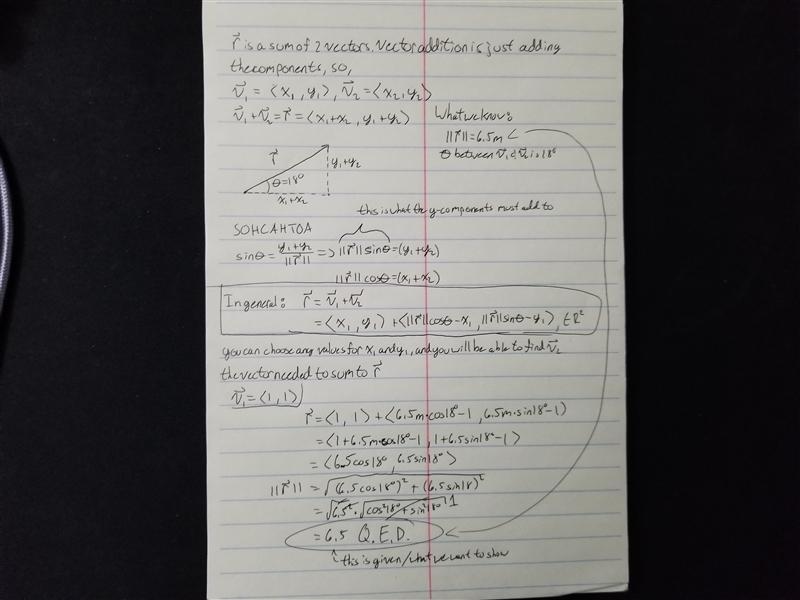 r⃗ is a sum of 2 vectors. Vector addition is just adding
the components, so,
v⃗₁ = ⟨x₁, y₁⟩, v⃗₂ = ⟨x₂, y₂⟩
v⃗₁ + v⃗₂ = r⃗ = ⟨x₁+x₂, y₁+y₂⟩
What we know:
||r⃗|| = 6.5m
θ between v⃗₁ & v⃗₂ is 18°
r⃗
y₁+y₂
θ=18°
x₁+x₂
this is what the y-components must add to
SOHCAHTOA
sinθ = (y₁+y₂)/||r⃗|| => ||r⃗||sinθ = (y₁+y₂)
||r⃗||cosθ = (x₁+x₂)
In general: r⃗ = v⃗₁ + v⃗₂
= ⟨x₁, y₁⟩ + ⟨||r⃗||cosθ - x₁, ||r⃗||sinθ - y₁⟩, ∈ ℝ²
you can choose any values for x₁ and y₁, and you will be able to find v⃗₂
the vector needed to sum to r⃗
v⃗₁ = ⟨1, 1⟩
r⃗ = ⟨1, 1⟩ + ⟨6.5m·cos18° - 1, 6.5m·sin18° - 1⟩
= ⟨1 + 6.5m·cos18° - 1, 1 + 6.5sin18° - 1⟩
= ⟨6.5cos18°, 6.5sin18°⟩
||r⃗|| = √((6.5cos18°)² + (6.5sin18)²)
= √6.5² · √(cos²18° + sin²18°) 1
= 6.5 Q.E.D.
this is given/what we want to show